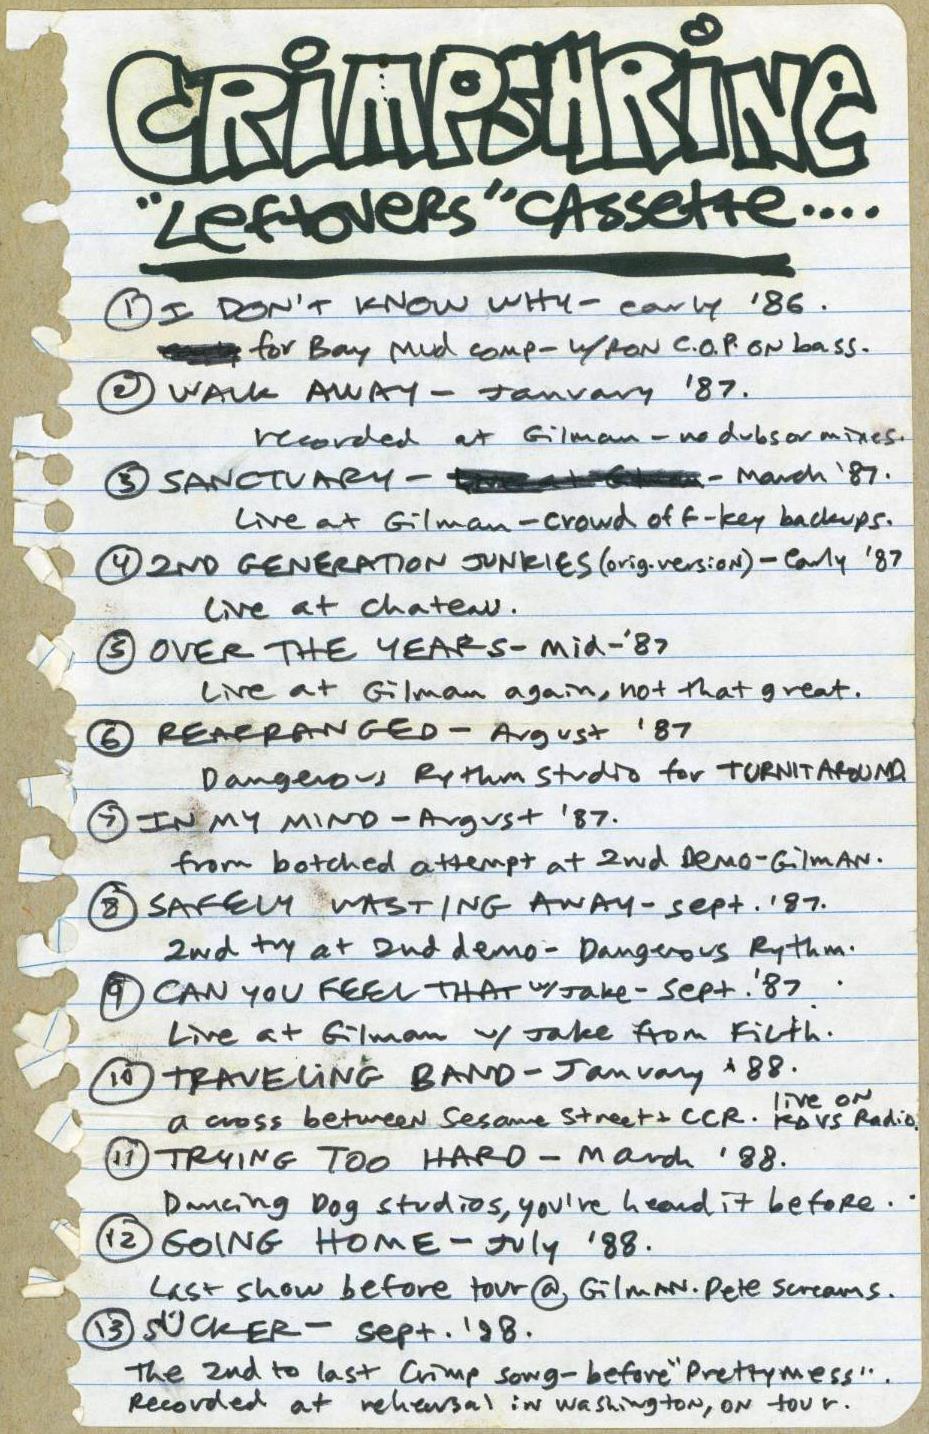 CRIMPSHRINE
"LEFtOVERS" CASSETTE....
① I DON'T KNOW WHY - early '86.
for Bay Mud comp - w/RON C.O.P. ON bass.
② WALK AWAY - January '87.
recorded at Gilman - no dubs or mixes.
③ SANCTUARY - - March '87.
Live at Gilman - crowd off-key backups.
④ 2ND GENERATION JUNKIES (orig. version) - Early '87
Live at chateau.
⑤ OVER THE YEARS - Mid-'87
Live at Gilman again, not that great.
⑥ REARRANGED - August '87
Dangerous Rythm Studio for TURN IT AROUND.
⑦ IN MY MIND - August '87.
from botched attempt at 2nd Demo - GilmAN.
⑧ SAFELY WASTING AWAY - sept. '87.
2nd try at 2nd demo - Dangerous Rythm.
⑨ CAN YOU FEEL THAT w/Jake - Sept. '87.
Live at Gilman w/ Jake from Filth.
⑩ TRAVELING BAND - January '88.
a cross between Sesame Street + CCR. live ON
KDVS Radio.
⑪ TRYING TOO HARD - March '88.
Dancing Dog studios, you've heard it before.
⑫ GOING HOME - July '88.
Last show before tour @ GilmAN. Pete screams.
⑬ SUCKER - Sept. '88.
The 2nd to last Crimp song - before "Prettymess".
Recorded at rehearsal in Washington, ON tour.